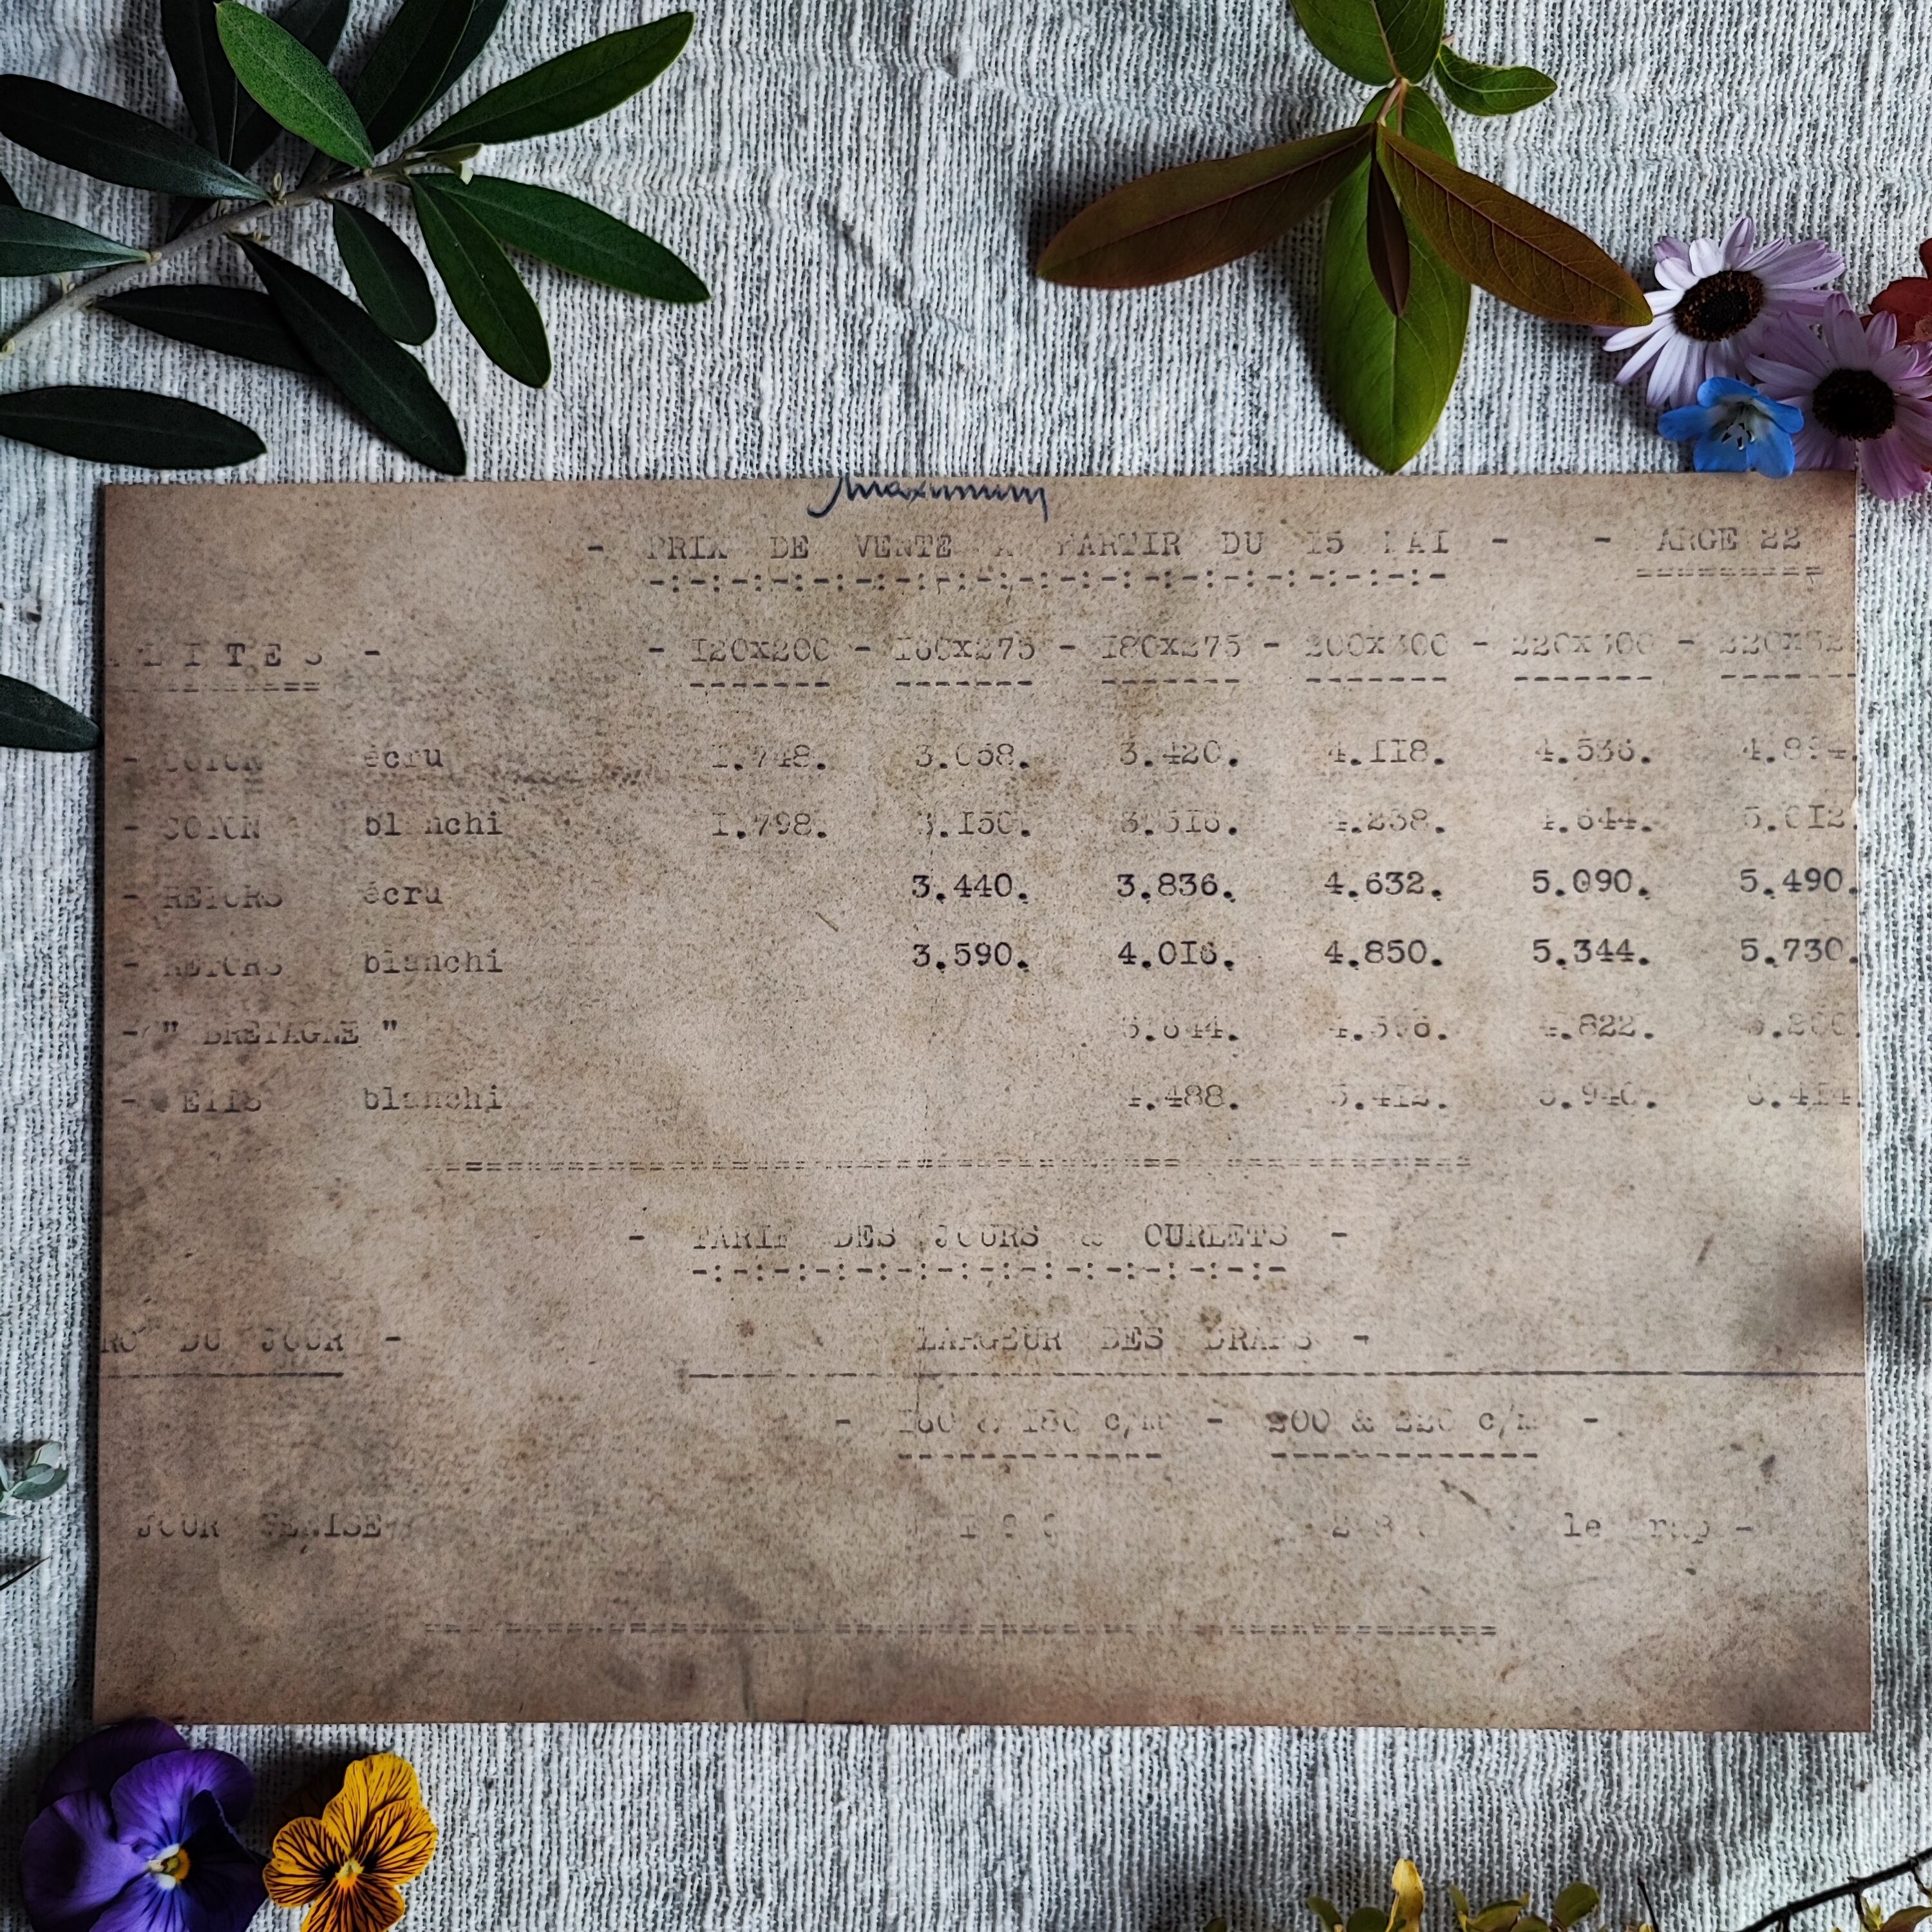 maximum
- PRIX DE VENTE A PARTIR DU 15 MAI - - ARGE 22 -
LITES - - 120x200 - 160x275 - 180x275 - 200x300 - 220x300 -
- COTON écru 1.748. 3.058. 3.420. 4.118. 4.536.
- COTON blanchi 1.798. 3.150. 3.516. 4.238. 4.644. 5.012.
- RETORS écru 3.440. 3.836. 4.632. 5.090. 5.490.
- RETORS blanchi 3.590. 4.016. 4.850. 5.344. 5.730.
- " BRETAGNE " 4.822.
- blanchi 4.488. 5.412. 5.940.
- TARIF DES JOURS & OURLETS -
RO DU JOUR - LARGEUR DES DRAPS -
- 160 & 180 c/m - 200 & 220 c/m -
JOUR VENISE le drap -